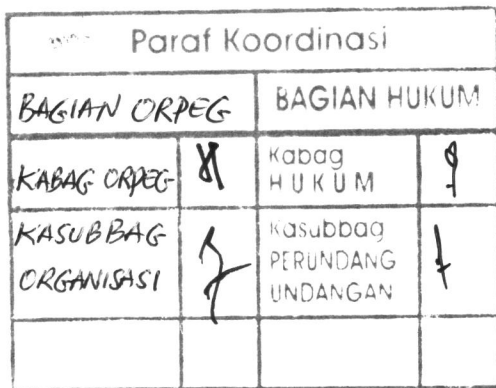 Paraf Koordinasi
BAGIAN ORPEG
BAGIAN HUKUM
KABAG ORPEG
Kabag
HUKUM
KASUBBAG
ORGANISASI
Kasubbag
PERUNDANG
UNDANGAN